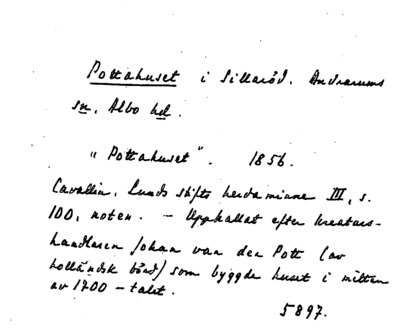 Pottahuset i Sillaröd. Andrarums
sn, Albo hd.
"Pottahuset". 1856.
Cavallin, Lunds stifts herdaminne III, s.
100, noten. - Uppkallat efter kreaturs-
handlaren Johan van der Pott (av
holländsk börd) som byggde huset i mitten
av 1700-talet.
5897.